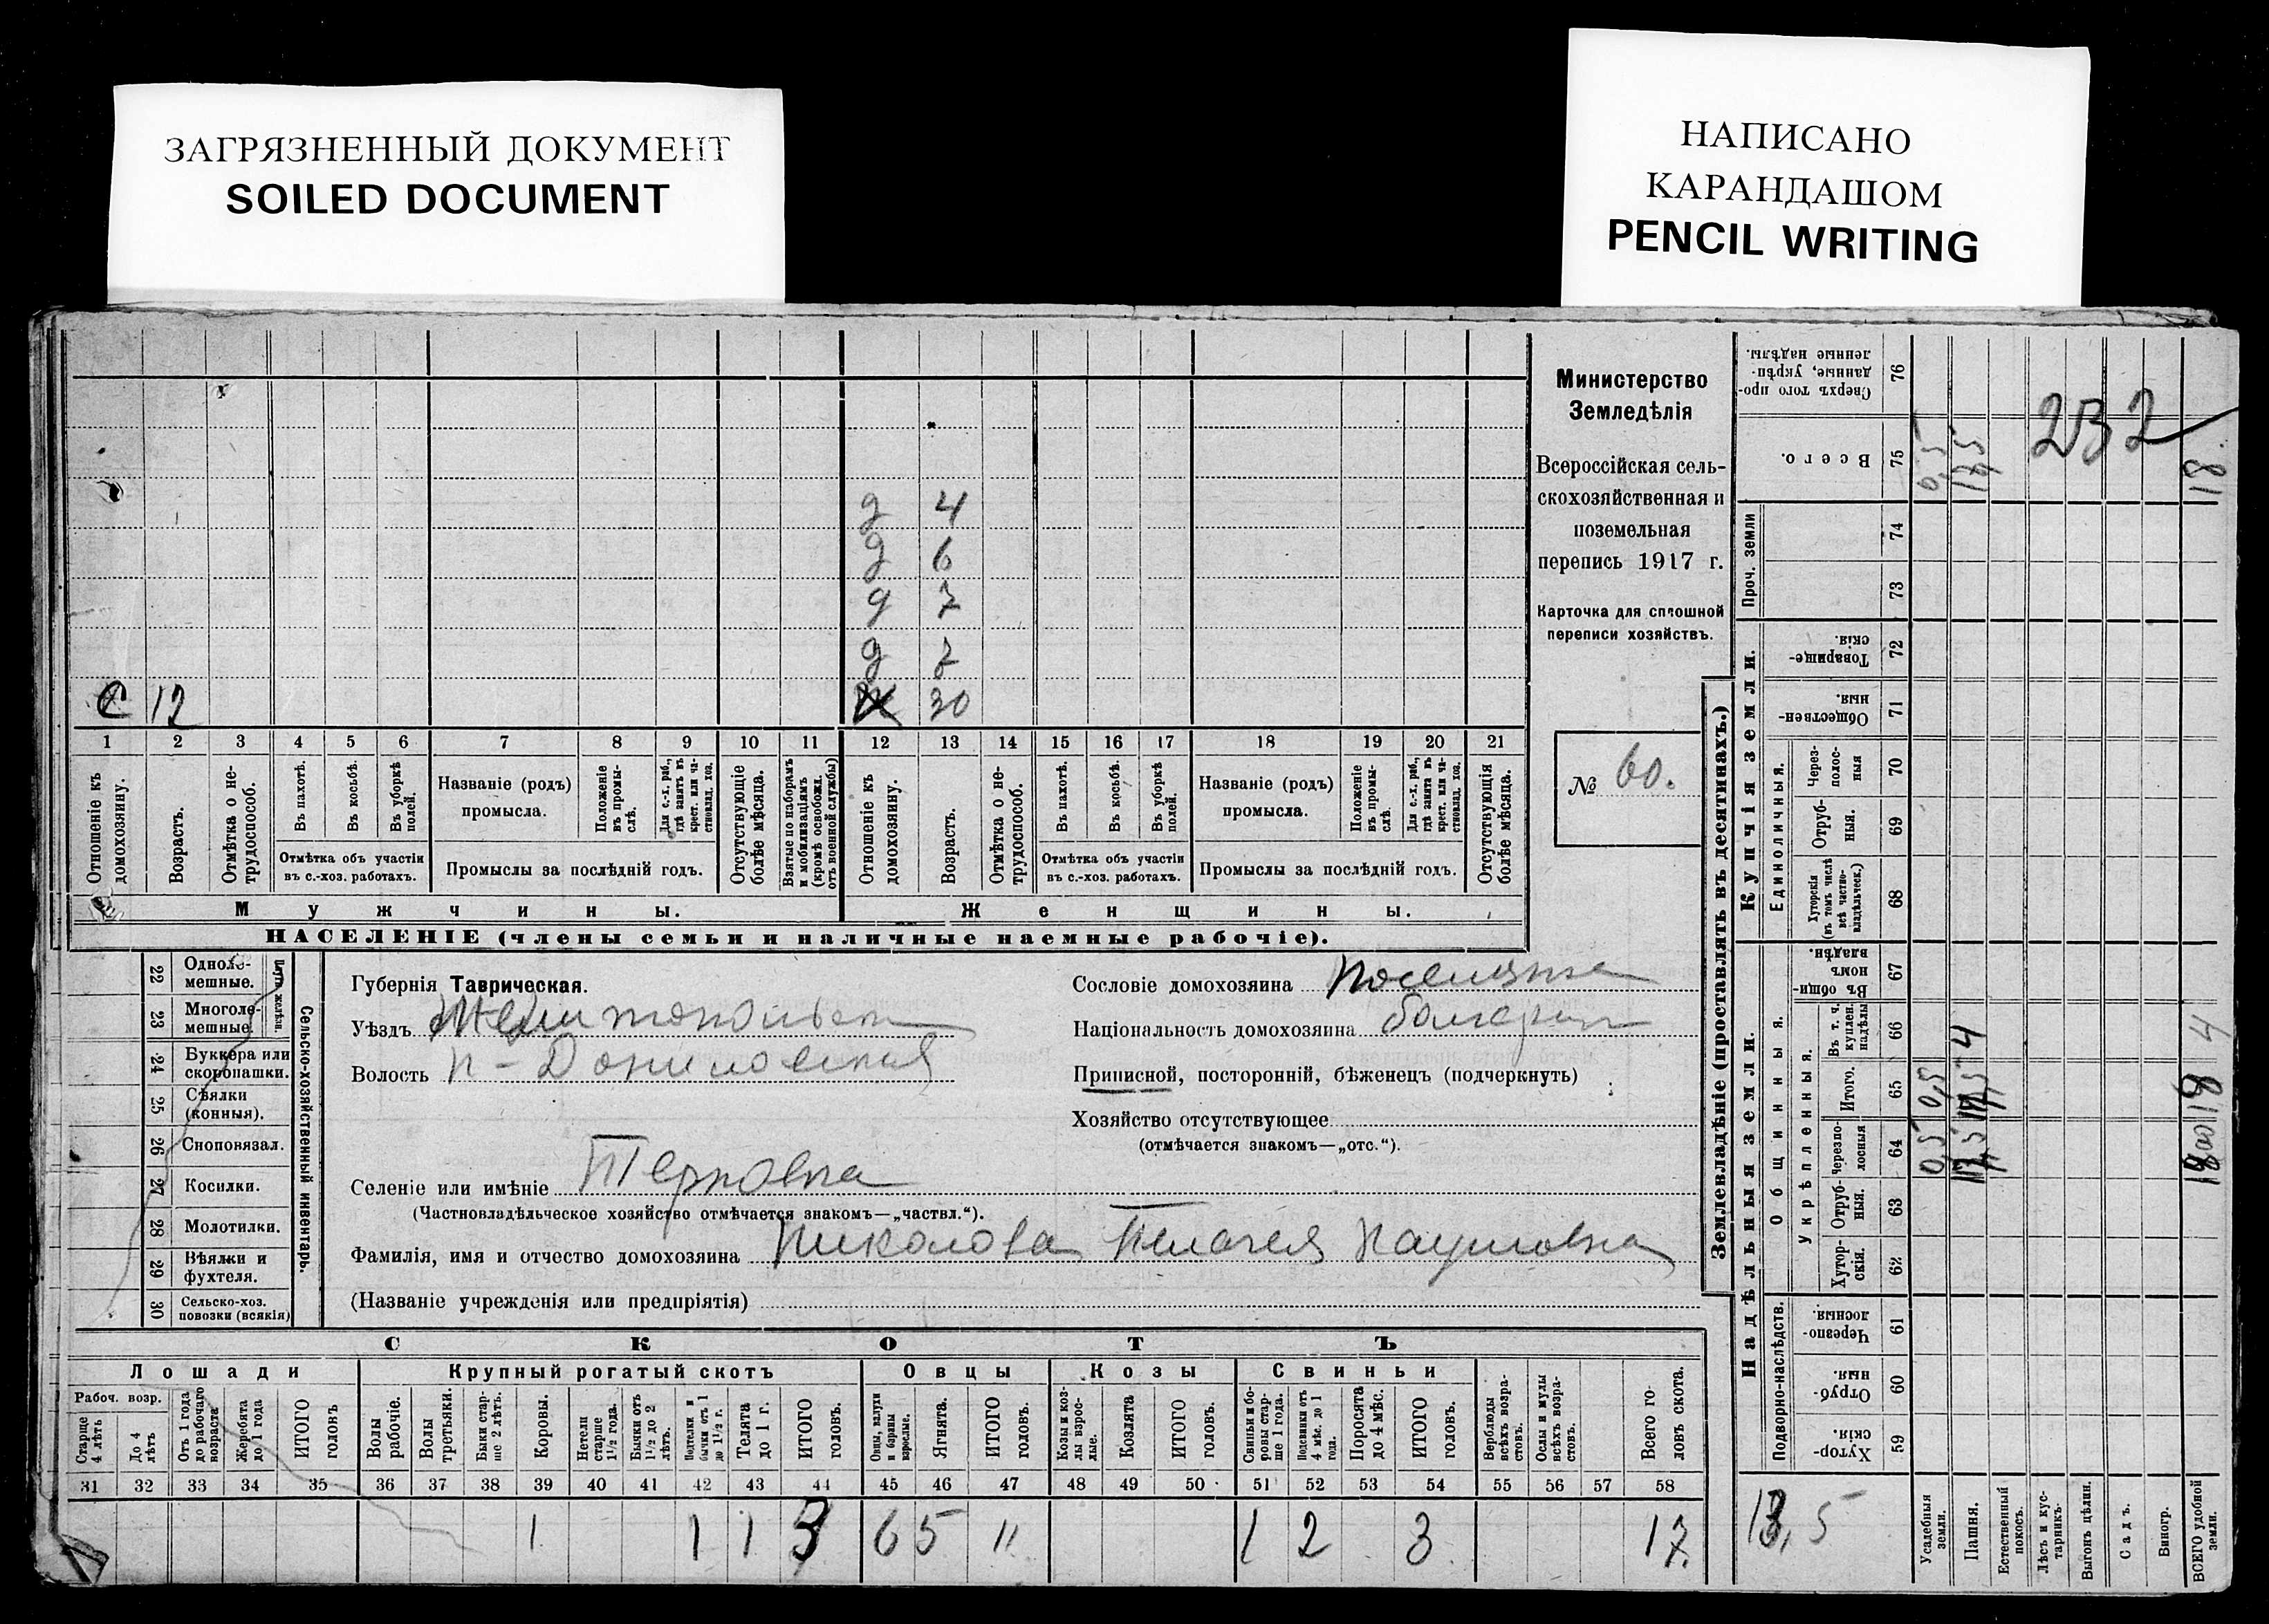 ЗАГРЯЗНЕННЫЙ ДОКУМЕНТ
SOILED DOCUMENT
НАПИСАНО
КАРАНДАШОМ
PENCIL WRITING
Министерство
Земледѣлія
Всероссійская сель-
скохозяйственная и
поземельная
перепись 1917 г.
Карточка для сплошной
переписи хозяйствъ.
№ 60.
д 4
д 6
д 7
д 7
С 12
30
1 2 3 4 5 6 7 8 9 10 11 12 13 14 15 16 17 18 19 20 21
Отношеніе къ домохозяину.
Возрастъ.
Отмѣтка о не-трудоспособ.
Въ пахотѣ.
Въ косьбѣ.
Въ уборкѣ полей.
Отмѣтка объ участіи
въ с.-хоз. работахъ.
Названіе (родъ)
промысла.
Положеніе въ промы-слѣ.
Для с.-х. раб., гдѣ занятъ въ крест. или ча-стновлад. хоз.
Промыслы за послѣдній годъ.
Отсутствующіе болѣе мѣсяца.
Взятые по наборамъ и мобилизаціямъ (кромѣ освобожд. отъ военной службы)
Отношеніе къ домохозяину.
Возрастъ.
Отмѣтка о не-трудоспособ.
Въ пахотѣ.
Въ косьбѣ.
Въ уборкѣ полей.
Отмѣтка объ участіи
въ с.-хоз. работахъ.
Названіе (родъ)
промысла.
Положеніе въ промы-слѣ.
Для с.-х. раб., гдѣ занята въ крест. или ча-стновлад. хоз.
Промыслы за послѣдній годъ.
Отсутствующія болѣе мѣсяца.
Мужчины. Женщины.
НАСЕЛЕНІЕ (члены семьи и наличные наемные рабочіе).
22 Одноле-мешные.
23 Многоле-мешные.
24 Буккера или скоропашки.
25 Сѣялки (конныя).
26 Сноповязал.
27 Косилки.
28 Молотилки.
29 Вѣялки и фухтеля.
30 Сельско-хоз. повозки (всякія)
Сельско-хозяйственный инвентарь.
Губернія Таврическая.
Уѣздъ Мелитопольск
Волость н-Даниловская
Сословіе домохозяина поселянка
Національность домохозяина болгарка
Приписной, посторонній, бѣженецъ (подчеркнуть)
Хозяйство отсутствующее
(отмѣчается знакомъ—„отс.“).
Селеніе или имѣніе Терновка
(Частновладѣльческое хозяйство отмѣчается знакомъ—„частвл.“).
Фамилія, имя и отчество домохозяина Николова Пелагея Наумовна
(Названіе учрежденія или предпріятія)
СКОТЪ
Лошади Крупный рогатый скотъ Овцы Козы Свиньи
Рабоч. возр.
Старше 4 лѣтъ
До 4 лѣтъ
Отъ 1 года до рабочаго возраста
Жеребята до 1 года
ИТОГО головъ
Волы рабочіе.
Волы третьяки.
Быки стар-ше 2 лѣтъ.
Коровы.
Нетели старше 1½ года.
Бычки отъ 1½ до 2 лѣтъ.
Подтелки и бычки отъ 1 до 1½ г.
Телята до 1 г.
ИТОГО головъ.
Овцы, валухи и бараны взрослые.
Ягнята.
ИТОГО головъ.
Козы и коз-лы взрос-лые.
Козлята
ИТОГО головъ.
Свиньи и бо-ровы стар-ше 1 года.
Подсвинки отъ 4 мѣс. до 1 года.
Поросята до 4 мѣс.
ИТОГО головъ.
Верблюды всѣхъ возра-стовъ.
Ослы и мулы всѣхъ возра-стовъ.
Всего го-ловъ скота.
31 32 33 34 35 36 37 38 39 40 41 42 43 44 45 46 47 48 49 50 51 52 53 54 55 56 57 58
1 1 1 3 6 5 11 1 2 3 17.
Землевладѣніе (проставлять въ десятинахъ.)
Надѣльныя земли. Купчія земли. Проч. земли
Подворно-наслѣдств.
Общинныя.
Укрѣпленныя.
Единоличныя.
Хутор-скія. 59
Отруб-ныя. 60
Черезпо-лосныя. 61
Хутор-скія. 62
Отруб-ныя. 63
Черезпо-лосныя 64
Итого. 65
Въ т. ч. куплен. надѣлы 66
Въ общин-номъ владѣн. 67
Хуторскія (въ томъ числѣ всѣ частно-владѣльческ.) 68
Отруб-ныя. 69
Через-полос-ныя 70
Обществен-ныя. 71
Товарище-скія. 72
73
74
Всего. 75
Сверхъ того про-данные, укрѣп-ленные надѣлы. 76
Усадебныя земли.
Пашня.
Естественный покосъ.
Лѣсъ и кус-тарникъ.
Выгонъ цѣлин.
Садъ.
Виногр.
ВСЕГО удобной земли.
0,5 0,5 0,5
17,5 17,5 4 17,5
18 4 18
232